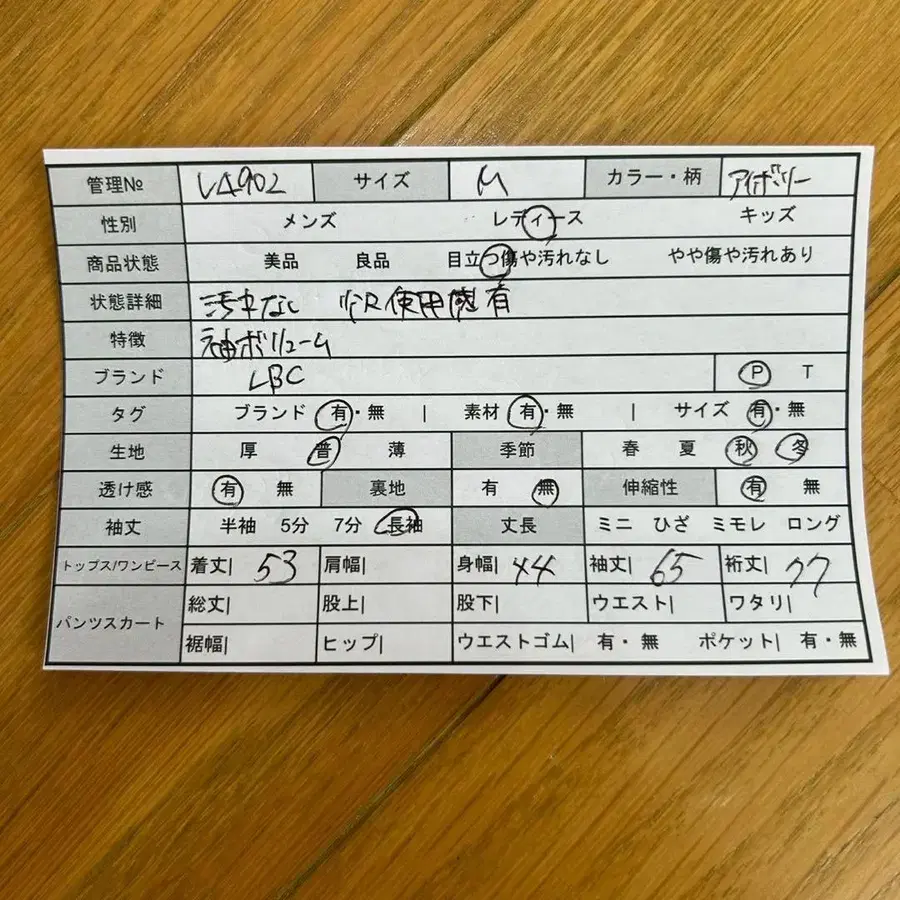 管理№ LA902 サイズ M カラー・柄 アイボリー
性別 メンズ レディース キッズ
商品状態 美品 良品 目立つ傷や汚れなし やや傷や汚れあり
状態詳細 汚れなし 少々使用感有
特徴 袖ボリューム
ブランド LBC P T
タグ ブランド 有・無 | 素材 有・無 | サイズ 有・無
生地 厚 普 薄 季節 春 夏 秋 冬
透け感 有 無 裏地 有 無 伸縮性 有 無
袖丈 半袖 5分 7分 長袖 丈長 ミニ ひざ ミモレ ロング
トップス/ワンピース 着丈| 53 肩幅| 身幅| 44 袖丈| 65 裄丈| 77
パンツスカート 総丈| 股上| 股下| ウエスト| ワタリ|
裾幅| ヒップ| ウエストゴム| 有・無 ポケット| 有・無